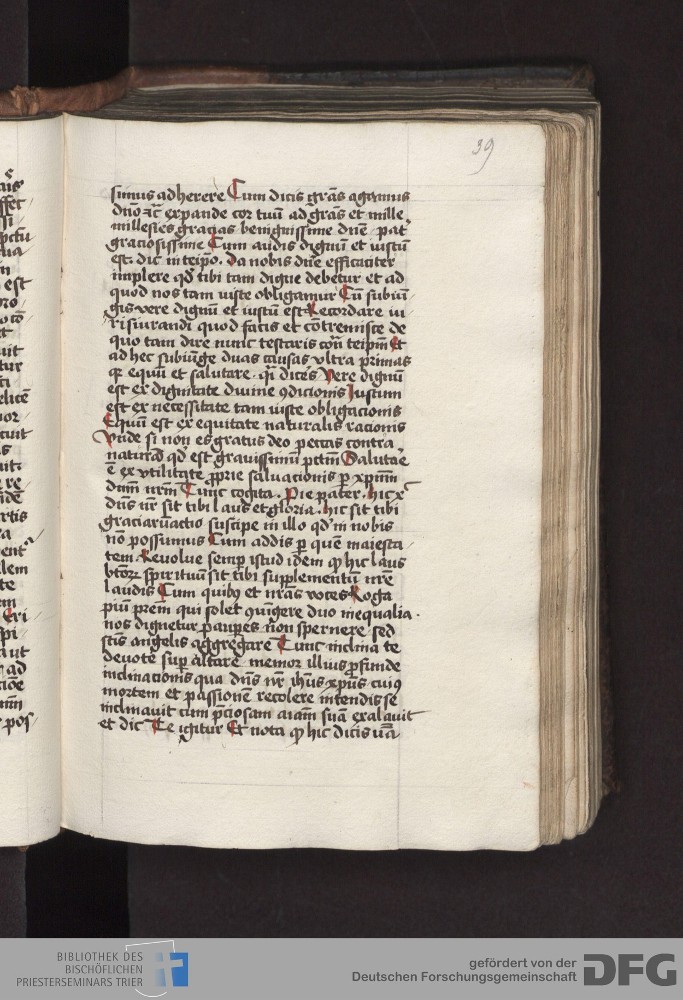 39
simus adherere Cum dicis grās agamus
dnō zc̄ expande cor tuū ad grās et mille
millesies gracias benignissime dne pat
graciosissime Cum audis dignū et iustū
est. dic in teip̄o. Da nobis dne efficaciter
implere qd tibi tam digne debetur et ad
quod nos tam iuste obligamur Cū subiū
gis vere dignū et iustū est Recordare iu
risiurandi quod facis et cōtremisce de
quo tam dire nunc testaris corā teip̄m Et
ad hec subiūge duas causas vltra primas
equū et salutare. dices Vere dignū
est ex dignitate diuine 9dicionis Iustum
est ex necessitate tam iuste obligacionis
Equū est ex equitate naturalis racionis
Vnde si non es gratus deo peccas contra
naturā qd est grauissimū pctm̄ Salutare
ē ex vtilitate p̄prie saluacionis p xpm̄
dnm nrm Tunc cogita. Pie pater. hic x
dns nr sit tibi laus et gloria. hic sit tibi
graciarumactio suscipe in illo qd in nobis
nō possumus Cum addis p quē maiesta
tem. Reuolue semp istud idem hic laus
btōꝝ spirituū sit tibi supplementū nrē
laudis Cum quibꝯ et nrās voces Roga
piū prem qui solet 9iūgere duo inequalia.
nos dignetur paupes non spernere sed
scīs angelis aggregare Tunc inclina te
deuote sup altare memor illius pfunde
inclinacionis qua dns nr ihūs xpūs cuiꝯ
mortem et passionē recolere intendis se
inclinauit cum p̄ciosam aīam suā exalauit
et dic Te igitur Et nota hic dicis
BIBLIOTHEK DES
BISCHÖFLICHEN
PRIESTERSEMINARS TRIER
gefördert von der
Deutschen Forschungsgemeinschaft
DFG